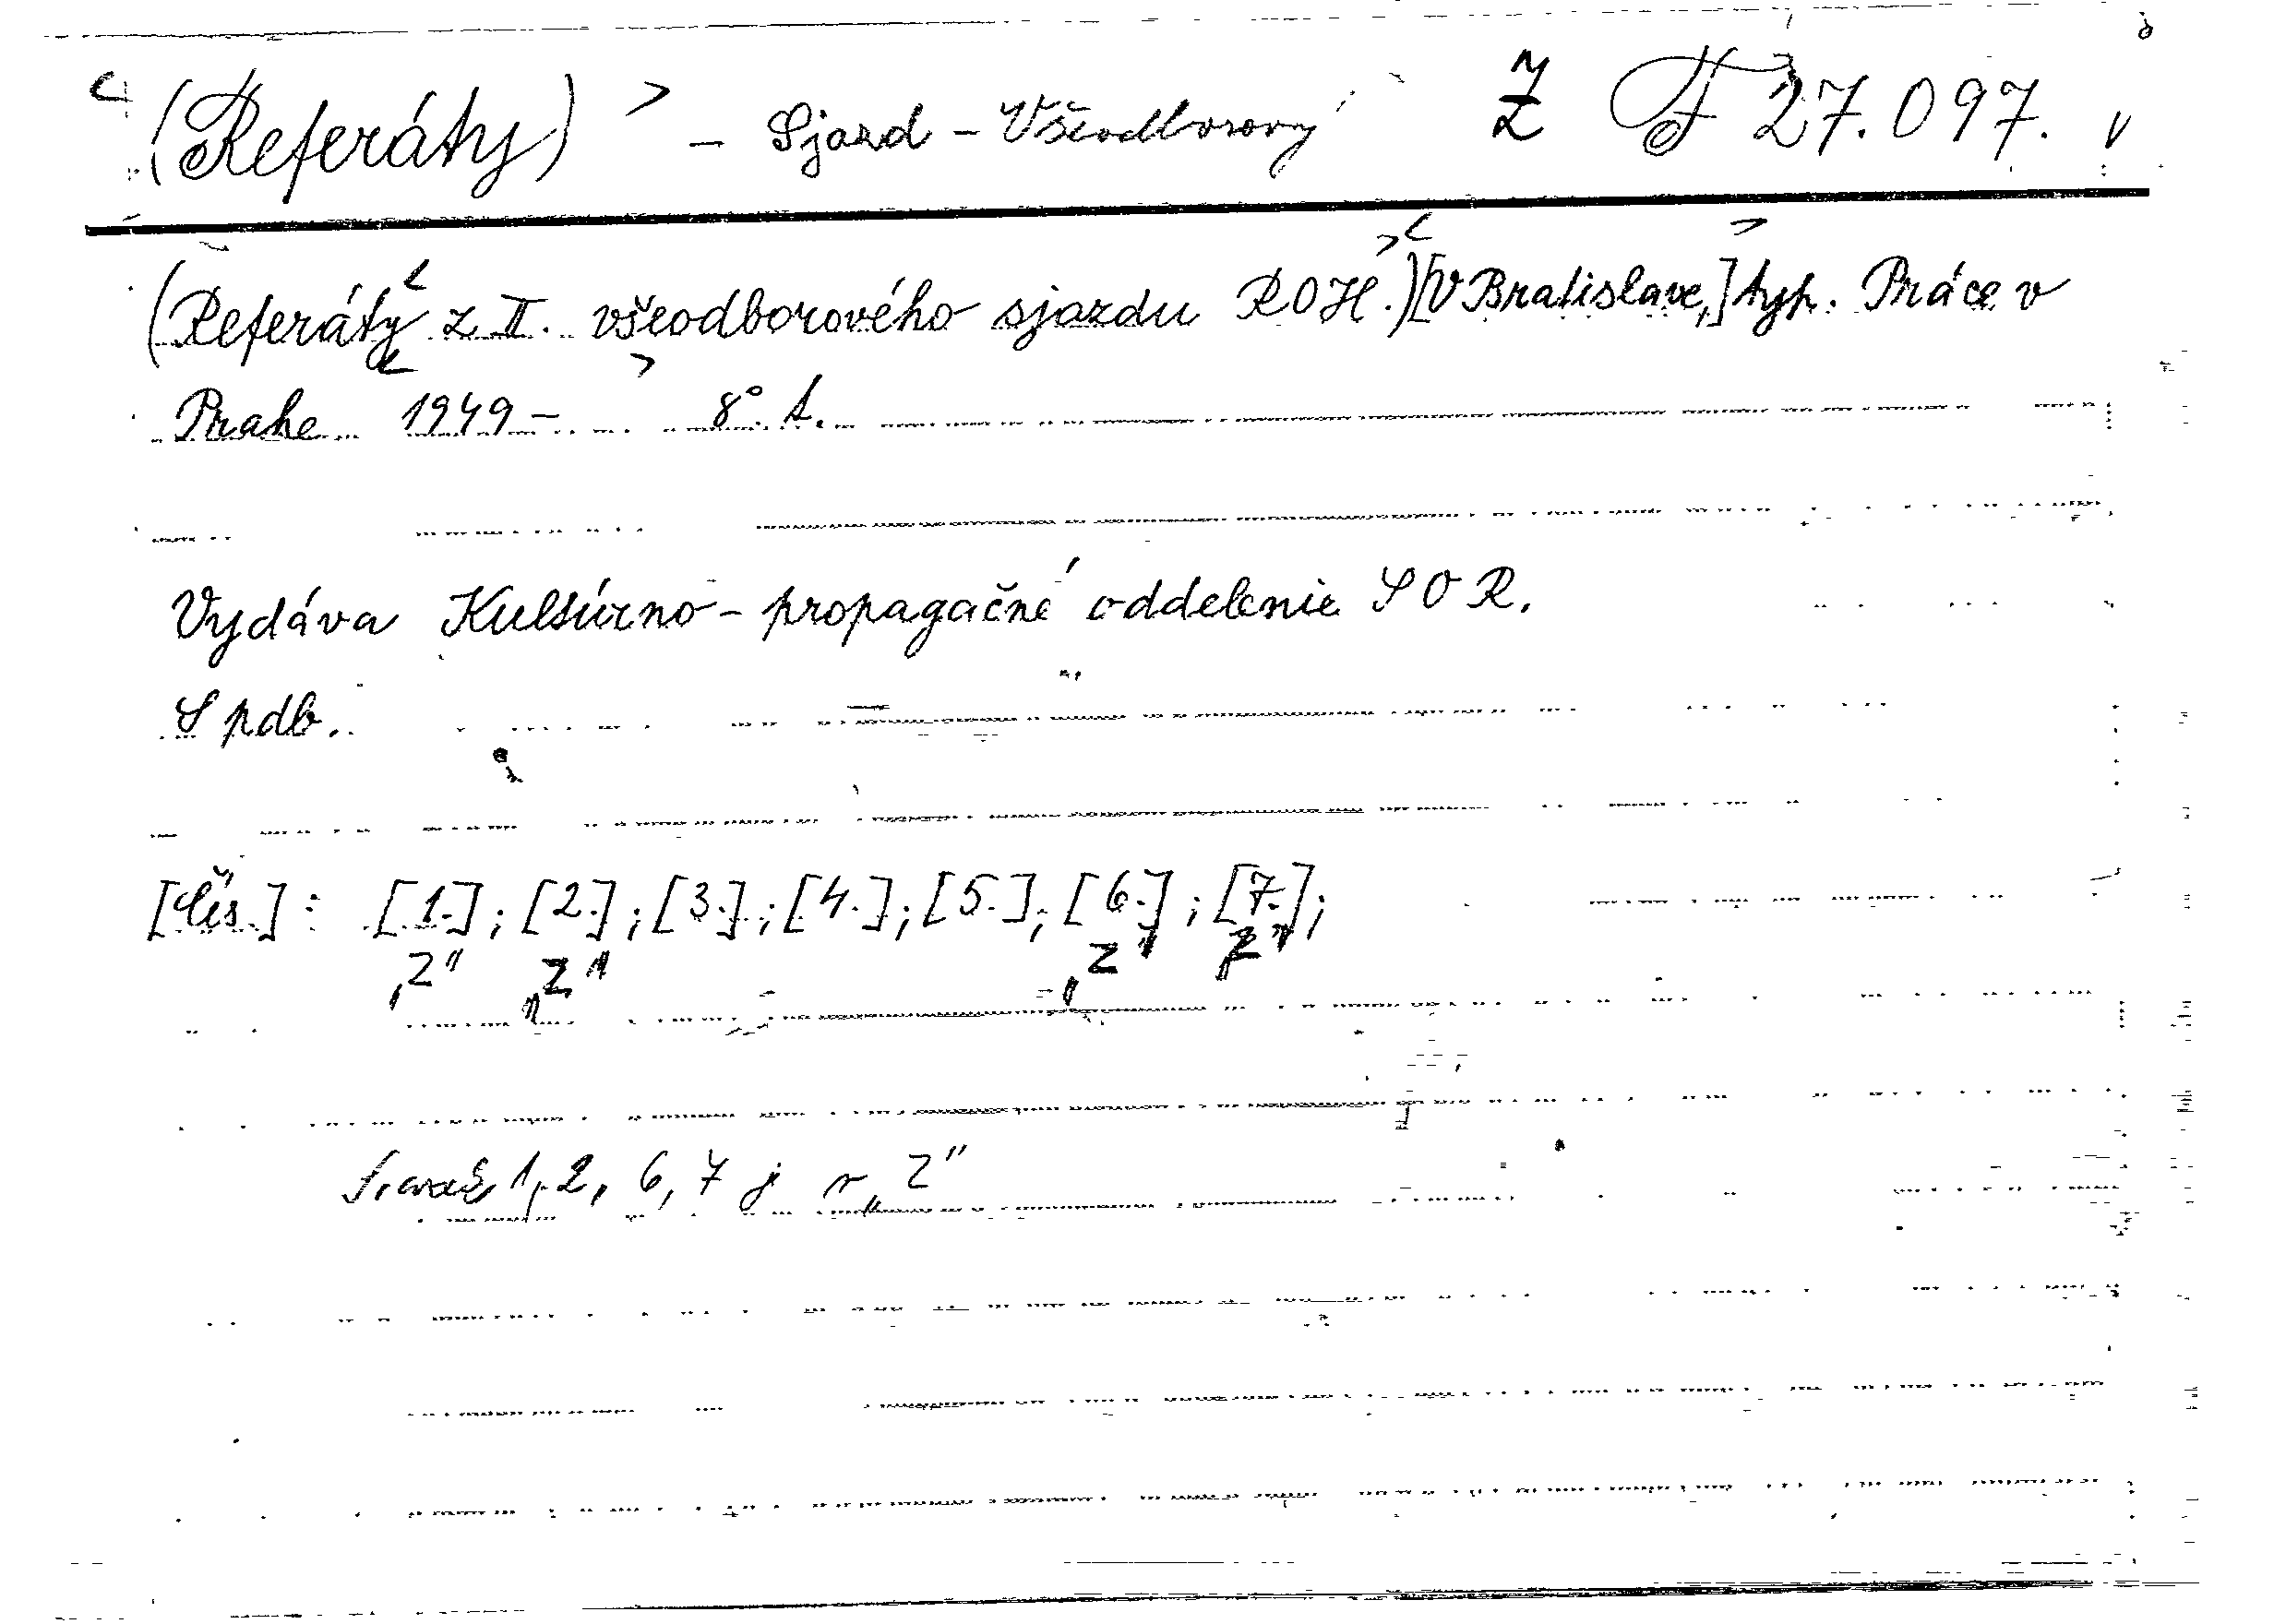 <(Referáty)> - Sjazd - Všeodborový Ž F 27.097.
(Referáty z II. všeodborového sjazdu ROH.)[V Bratislave,] typ. Práce v
Prahe 1949 - 8°. t.
Vydáva Kultúrno-propagačné oddelenie SOR.
S pdb.
[Čís.]: [1.]; [2.]; [3.]; [4.]; [5.]; [6.]; [7.];
„Z" „Z" „Z" „Z"
1, 2, 6, 7 j „Z"